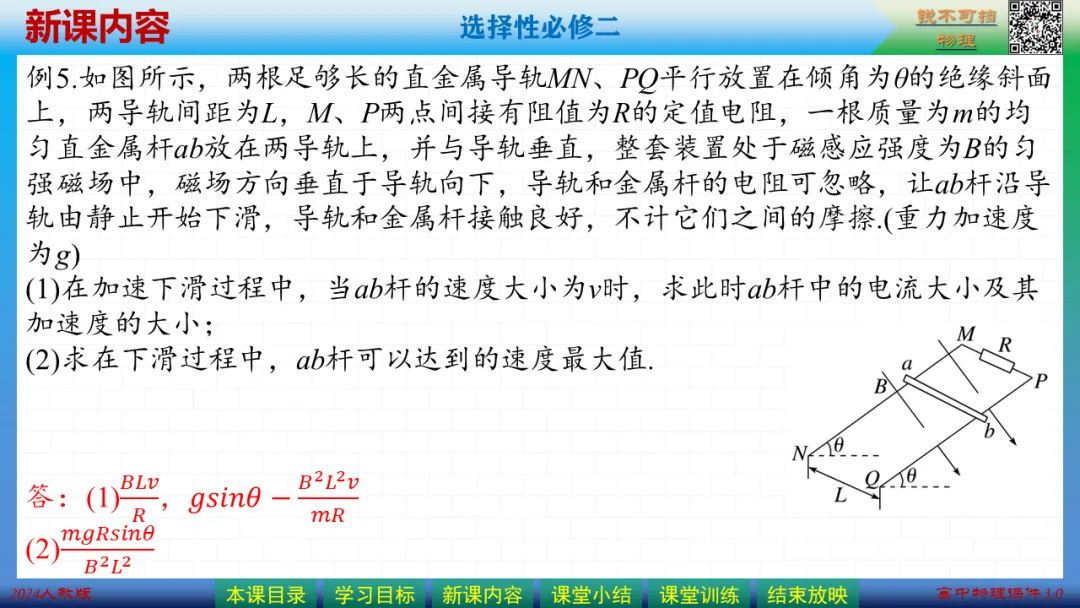 新课内容
选择性必修二
锐不可挡
物理
例5.如图所示，两根足够长的直金属导轨MN、PQ平行放置在倾角为θ的绝缘斜面
上，两导轨间距为L，M、P两点间接有阻值为R的定值电阻，一根质量为m的均
匀直金属杆ab放在两导轨上，并与导轨垂直，整套装置处于磁感应强度为B的匀
强磁场中，磁场方向垂直于导轨向下，导轨和金属杆的电阻可忽略，让ab杆沿导
轨由静止开始下滑，导轨和金属杆接触良好，不计它们之间的摩擦.(重力加速度
为g)
(1)在加速下滑过程中，当ab杆的速度大小为v时，求此时ab杆中的电流大小及其
加速度的大小；
(2)求在下滑过程中，ab杆可以达到的速度最大值.
M
R
a
P
B
b
N
θ
Q
θ
L
答：(1)$\frac{BLv}{R}$，$gsinθ-\frac{B^2L^2v}{mR}$
(2)$\frac{mgRsinθ}{B^2L^2}$
2024人教版
本课目录 学习目标 新课内容 课堂小结 课堂训练 结束放映
高中物理课件3.0